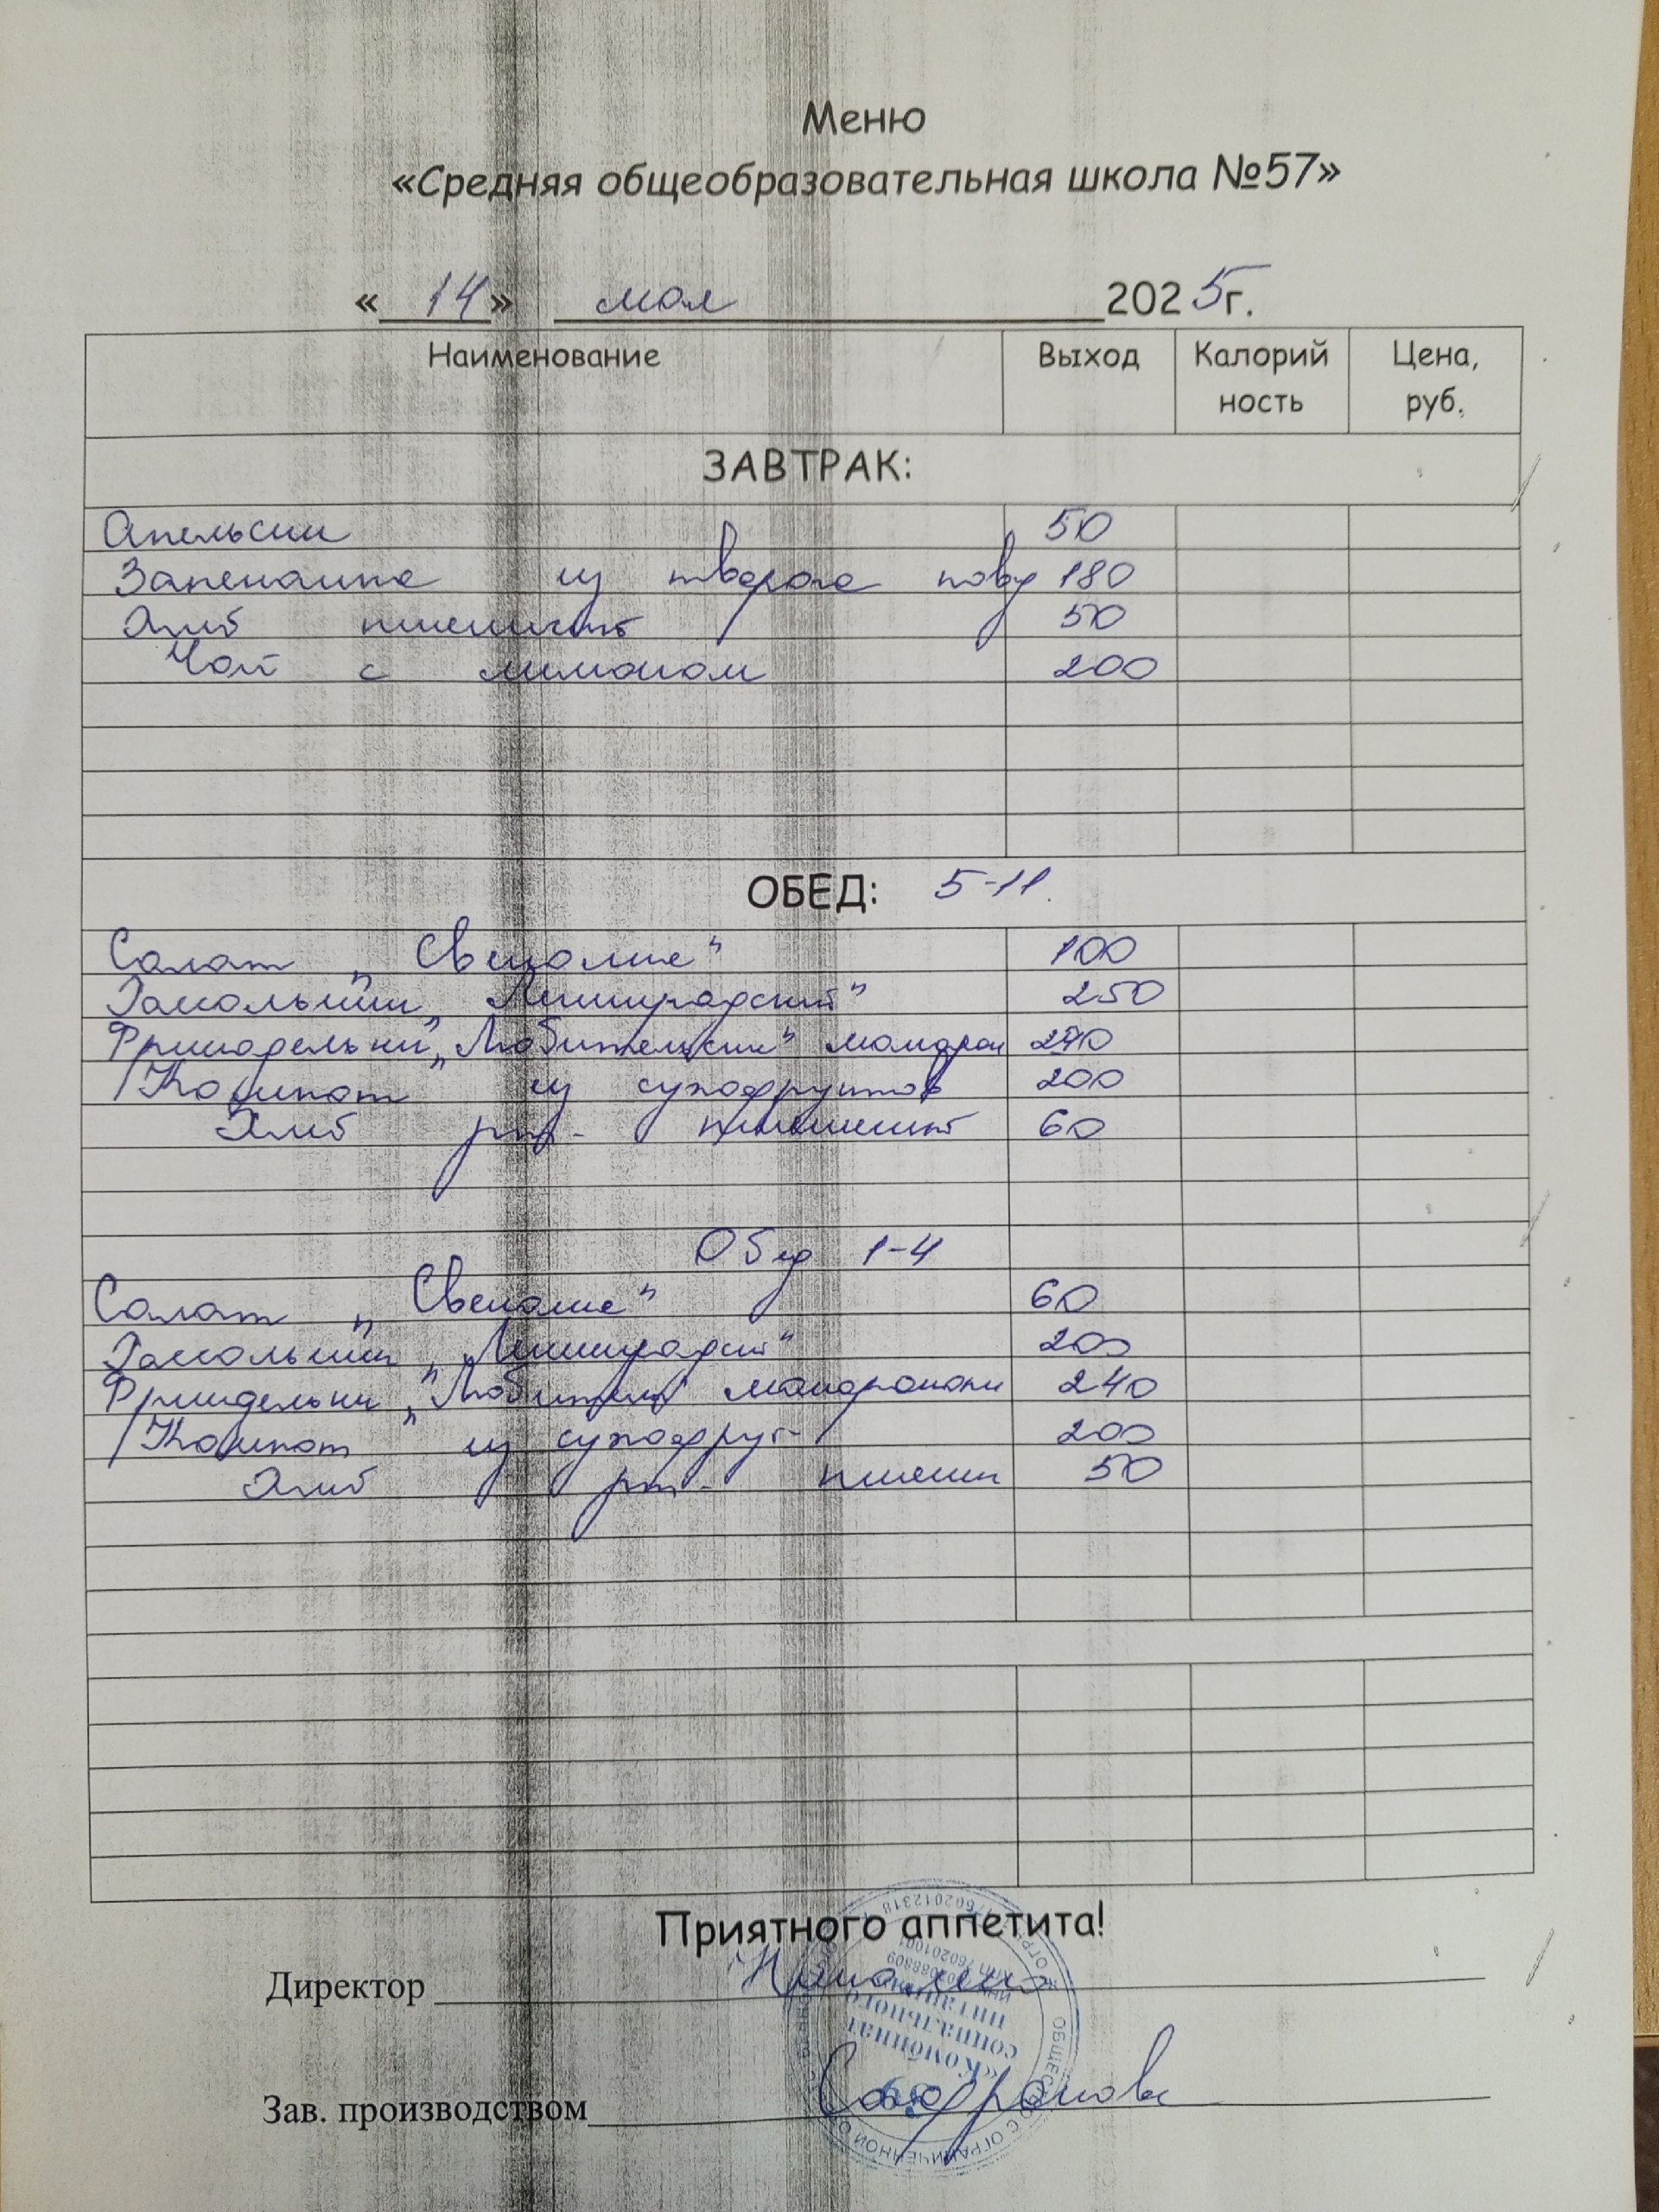 Меню
«Средняя общеобразовательная школа №57»
« 14 » мая 2025г.
Наименование Выход Калорий ность Цена, руб.
ЗАВТРАК:
Апельсин 50
Запеканка из творога пов 180
Хлеб пшеничн 50
Чай с лимоном 200
ОБЕД: 5-11.
Салат „Свеколие" 100
Рассольник „Ленинградский" 250
Фрикадельки „Любительские" макарон 240
Компот из сухофруктов 200
Хлеб рж. пшеничн 60
Обед 1-4
Салат „Свеколие" 60
Рассольник „Ленинградск" 200
Фрикадельки „Любительс макаронами 240
Компот из сухофрук 200
Хлеб рж. пшенич 50
Приятного аппетита!
Директор
Зав. производством Сафронова
«Комбинат
социального
питания»